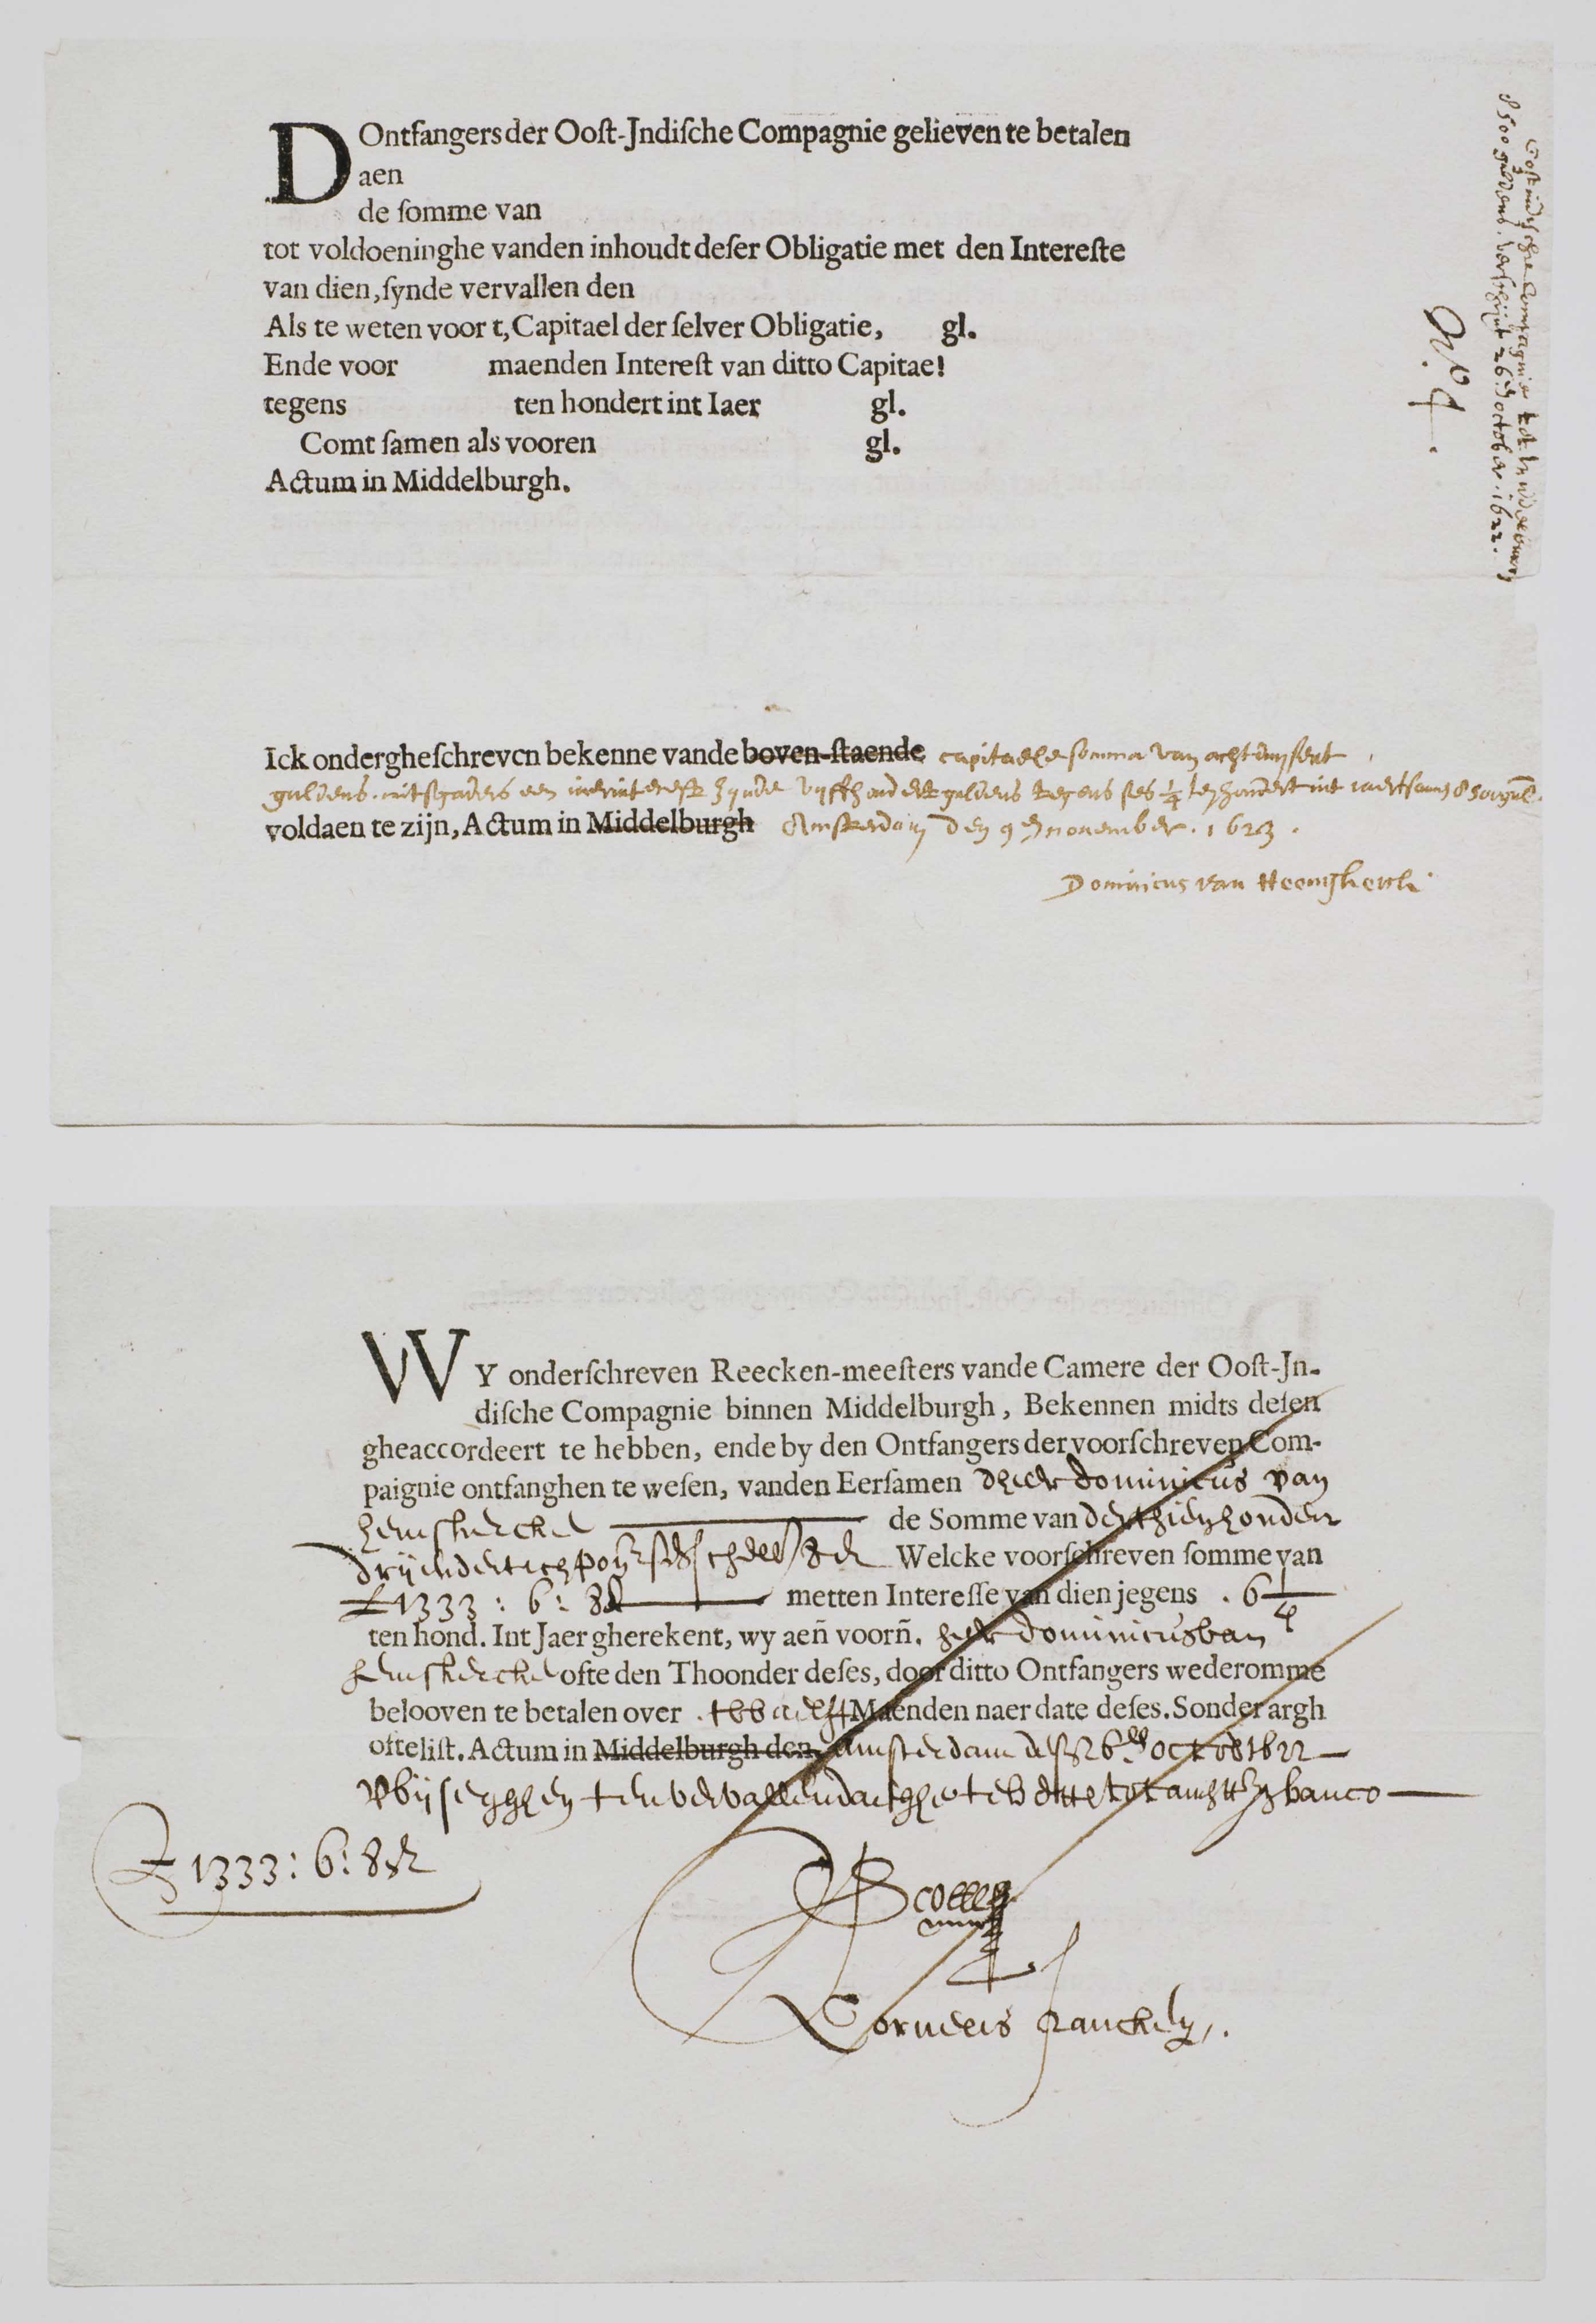 D Ontfangers der Oost-Jndische Compagnie gelieven te betalen
aen
de somme van
tot voldoeninghe vanden inhoudt deser Obligatie met den Intereste
van dien, synde vervallen den
Als te weten voor t, Capitael der selver Obligatie, gl.
Ende voor maenden Interest van ditto Capitael
tegens ten hondert int Iaer gl.
Comt samen als vooren gl.
Actum in Middelburgh.
Oostindische Compagnie tot
8500 guldens 26 october. 1622.
N.º 4.
Ick onderghe schreven bekenne vande boven-staende capitaele somma van acht duysent
guldens. mitsgaders een iaer interest zynde vyffhondert guldens tegens ses ¼ ten hondert int iaer tsamen 8500 gul.
voldaen te zijn, Actum in Middelburgh Amsterdam den 9 en november. 1623.
Dominicus van Heemskerck
WY onderschreven Reecken-meesters vande Camere der Oost-Jn-
dische Compagnie binnen Middelburgh, Bekennen midts desen
gheaccordeert te hebben, ende by den Ontfangers der voorschreven Com-
paignie ontfanghen te wesen, vanden Eersamen dheer dominicus van
heemskercke de Somme van derthien honder
drijendertich pon sch 8 d Welcke voorschreven somme van
£ 1333 : 6 : 8 d metten Interesse van dien jegens . 6 ¼
ten hond. Int Jaer gherekent, wy aeñ voorñ. heer dominicus van
heemskercke ofte den Thoonder deses, door ditto Ontfangers wederomme
belooven te betalen over . twaelff Maenden naer date deses. Sonder argh
ofte list. Actum in Middelburgh den, Amsterdam desen 26 en october 1622
banco
£ 1333 : 6 : 8 d
Cornelis